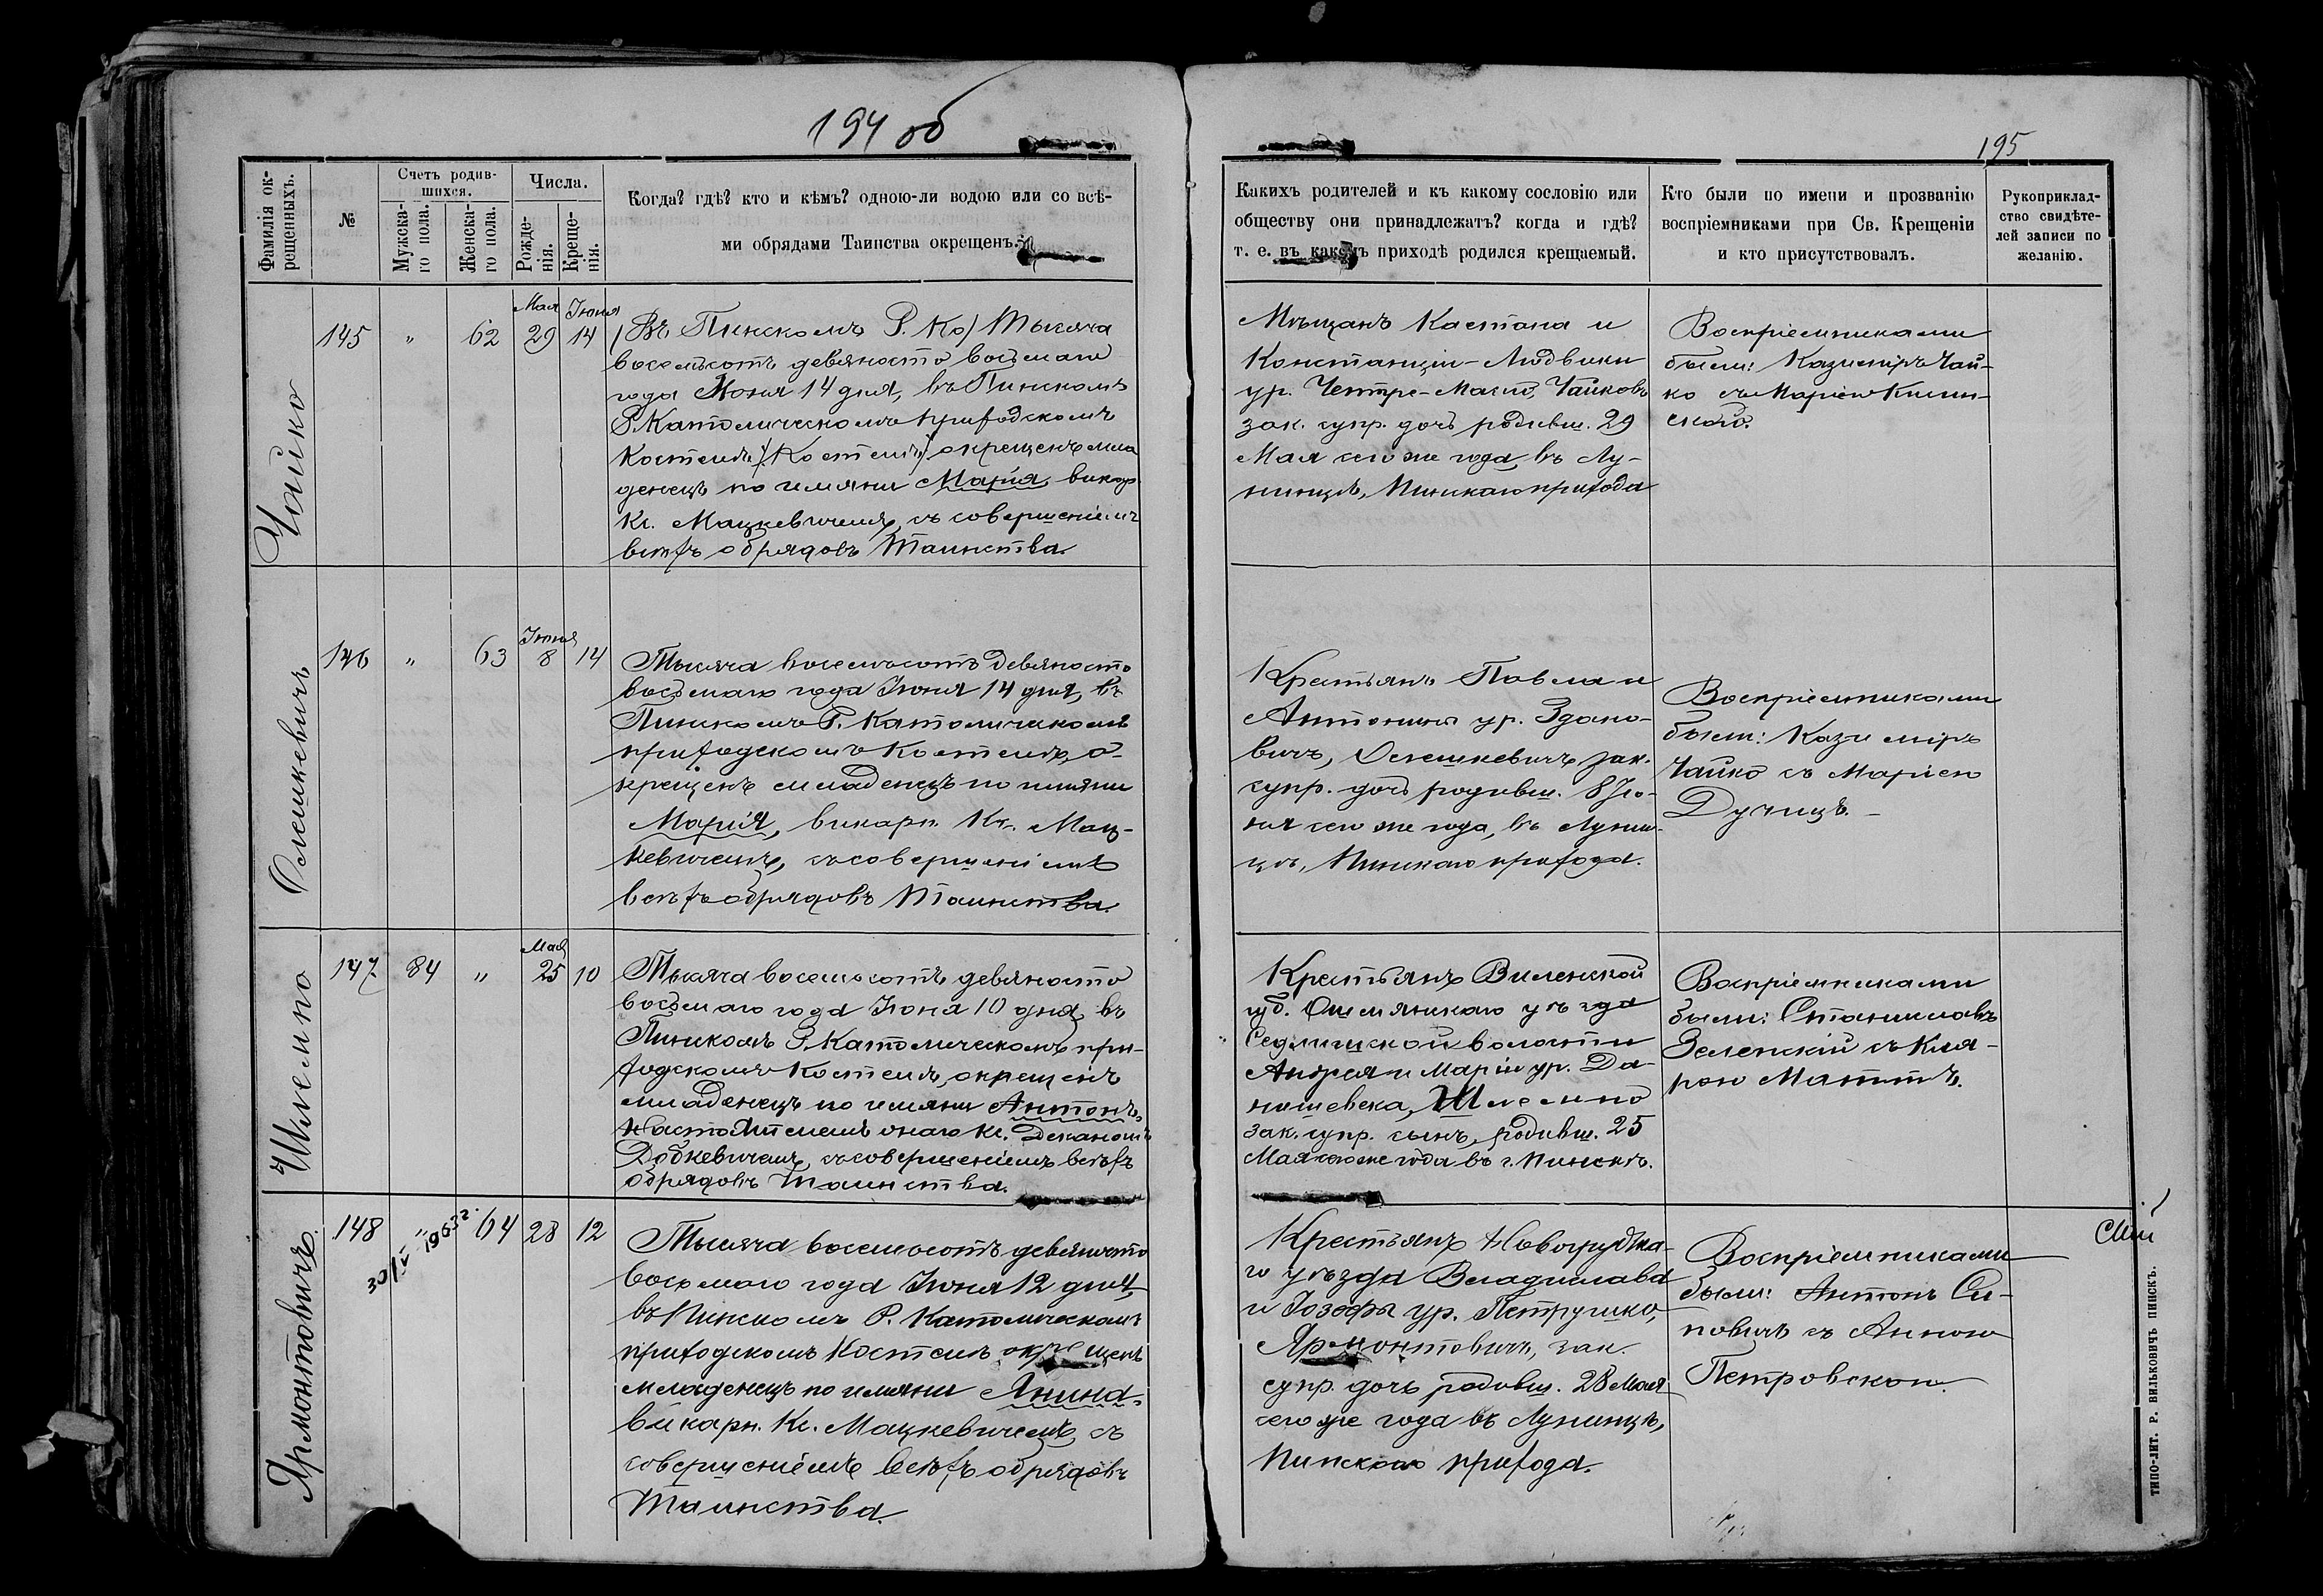 194 об
195
Фамилія ок-
рещенныхъ.
№
Счетъ родив-
шихся.
Мужска-
го пола.
Женска-
го пола.
Числа.
Рожде-
нія.
Креще-
нія.
Когда? гдѣ? кто и кѣмъ? одною-ли водою или со всѣ-
ми обрядами Таинства окрещенъ.
Какихъ родителей и къ какому сословію или
обществу они принадлежатъ? когда и гдѣ?
т. е. въ какомъ приходѣ родился крещаемый.
Кто были по имени и прозванію
воспріемниками при Св. Крещеніи
и кто присутствовалъ.
Рукоприклад-
ство свидѣте-
лей записи по
желанію.
Чайко
145 " 62
Мая 29
Іюня 14
(Въ Пинскомъ Р. Ко) Тысяча
восемьсотъ девяносто восьмаго
года Іюня 14 дня, въ Пинскомъ
Р. Католическомъ приходскомъ
Костелѣ (Костелѣ) окрещенъ мла
денецъ по имяни Марія, викар.
Кс. Мацкевичемъ, съ совершеніемъ
всѣхъ обрядовъ Таинства.
Мѣщанъ Каетана и
Констанціи-Людвики
ур. Чайковъ
зак. супр. дочь родивш. 29
Мая сего же года, въ Лу-
нинцѣ, Пинскаго прихода
Воспріемниками
были: Казимиръ Чай-
ко съ Маріею
Олешкевичъ
146 " 63
Іюня 8
14
Тысяча восемьсотъ девяносто
восьмаго года Іюня 14 дня, въ
Пинскомъ Р. Католическомъ
приходскомъ Костелѣ, о-
крещенъ младенецъ по имяни
Марія, викарн. Кс. Мац-
кевичемъ, съ совершеніемъ
всѣхъ обрядовъ Таинства.
Крестьянъ Павла и
Антонины ур. Здано-
вичъ, Олешкевичъ зак.
супр. дочь родивш. 8 Ію-
ня сего же года, въ Лунин-
цѣ, Пинскаго прихода.
Воспріемниками
были: Казимиръ
Чайко съ Маріею
Дучицъ.
Шлемпо
147 84 "
Мая 25
10
Тысяча восемьсотъ девяносто
восьмаго года Іюня 10 дня, въ
Пинскомъ Р. Католическомъ при-
ходскомъ Костелѣ, окрещенъ
младенецъ по имяни Антонъ,
Настоятелемъ онаго Кс. Деканомъ
Добкевичемъ, съ совершеніемъ всѣхъ
обрядовъ Таинства.
Крестьянъ Виленской
губ. Ошмянскаго уѣзда
Седлишской волости
Андрея и Маріи ур. Да-
нишевска, Шлемпо
зак. супр. сынъ, родивш. 25
Мая сего же года въ г. Пинскѣ.
Воспріемниками
были: Станиславъ
Зеленскій съ Кля-
рою
Ярмонтовичъ
148 " 64 28 12
30/IV 1963 г.
Тысяча восемьсотъ девяносто
восьмаго года Іюня 12 дня,
въ Пинскомъ Р. Католическомъ
приходскомъ Костелѣ окрещенъ
младенецъ по имяни Янина,
викарн. Кс. Мацкевичемъ, съ
совершеніемъ всѣхъ обрядовъ
Таинства.
Крестьянъ Новогрудска-
го уѣзда Владислава
и Іозефы ур. Петрушко,
Ярмонтовичъ, зак.
супр. дочь родивш. 28 Мая
сего же года въ Лунинцѣ,
Пинскаго прихода.
Воспріемниками
были: Антонъ Си-
повичъ съ Анною
Петровскою.
ТИПО-ЛИТ. Р. ВИЛЬКОВИЧЪ ПИНСКЪ.